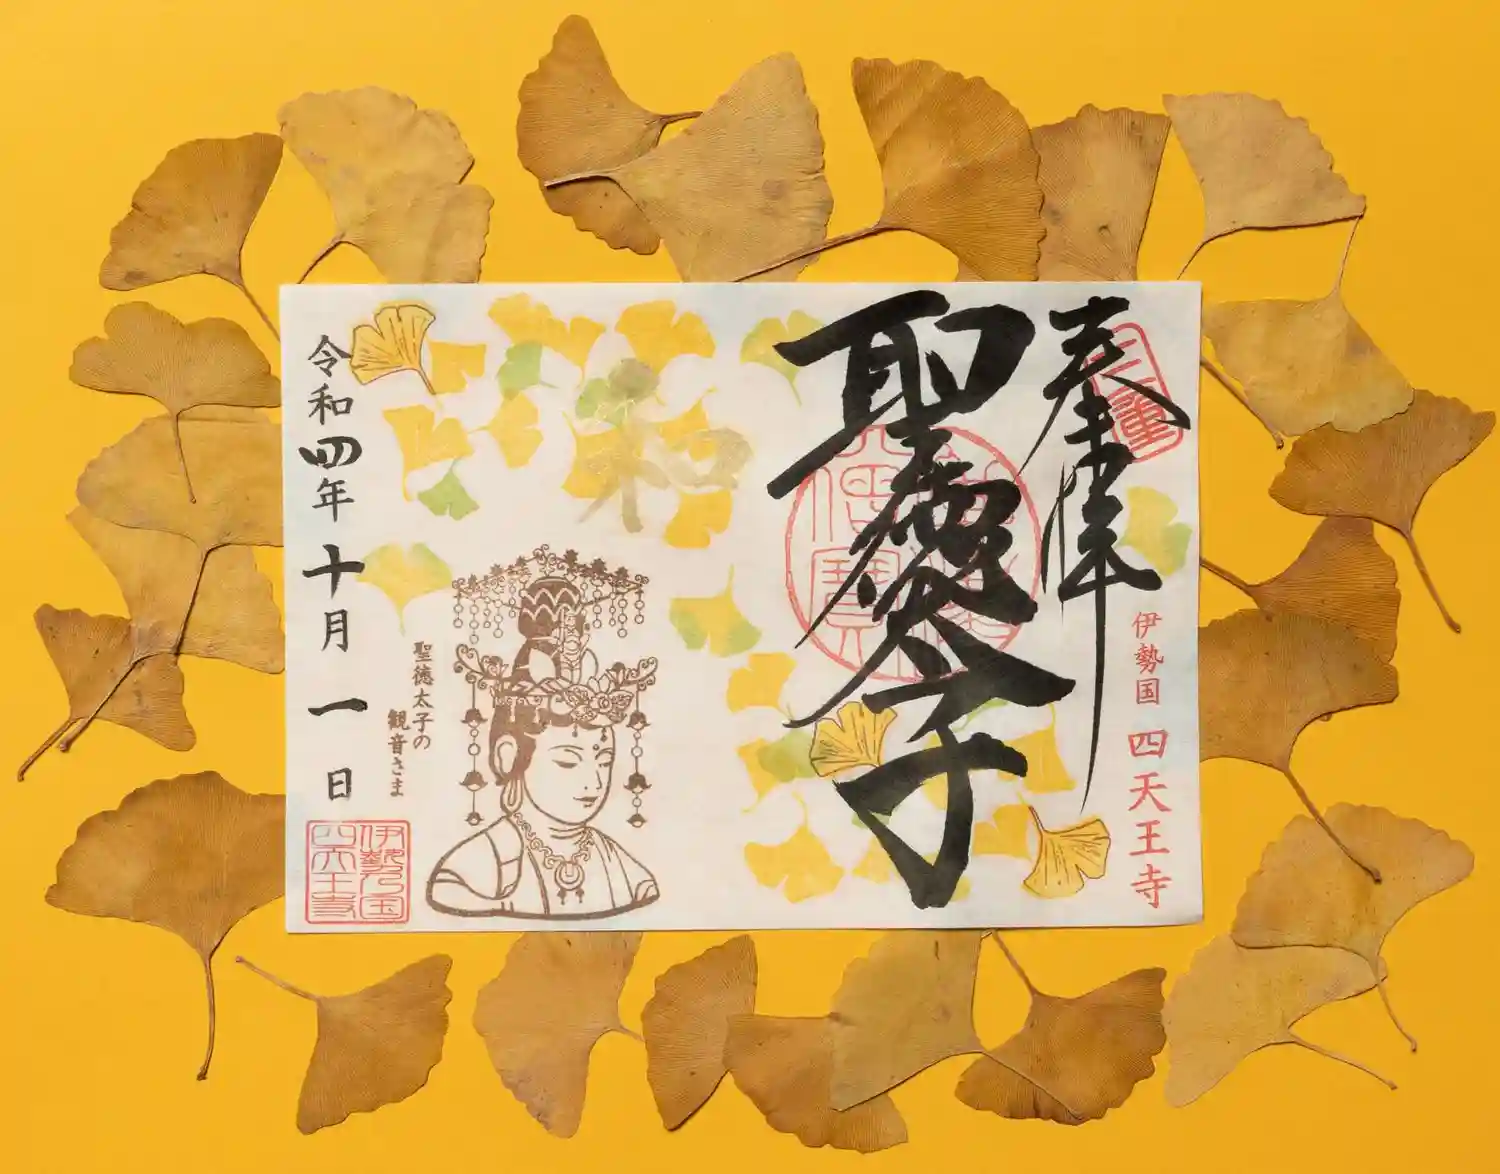 三重
奉拝
伊勢国 四天王寺
聖徳太子
僧寶
和
聖徳太子の
観音さま
令和四年十月一日
伊勢乃国
四天王寺